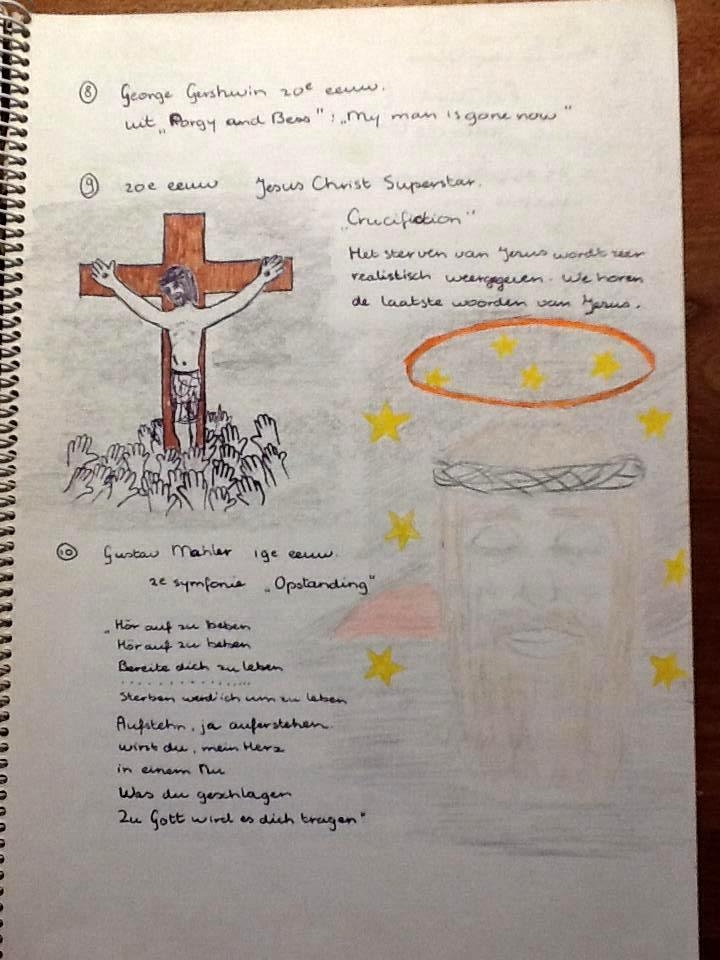 ⑧ George Gershwin 20e eeuw.
uit „Porgy and Bess": „My man is gone now"
⑨ 20e eeuw Jesus Christ Superstar.
„Crucifiction"
Het sterven van Jesus wordt zeer
realistisch weergegeven. We horen
de laatste woorden van Jesus.
⑩ Gustav Mahler 19e eeuw.
2e symfonie „Opstanding"
„Hör auf zu beben
Hör auf zu beben
Bereite dich zu leben
.................
Sterben werd ich um zu leben
Aufstehn, ja auferstehen.
wirst du, mein Herz
in einem Nu
Was du geschlagen
Zu Gott wird es dich tragen"